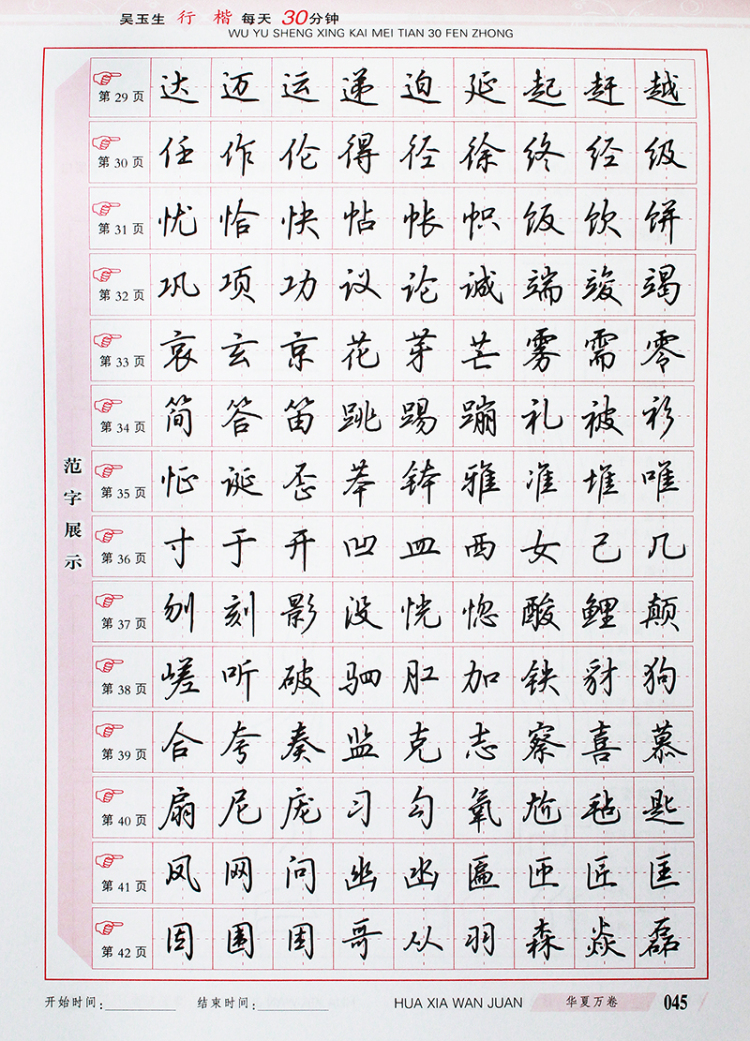 吴玉生 行 楷 每天 30分钟
WU YU SHENG XING KAI MEI TIAN 30 FEN ZHONG
范字展示
第 29 页 达 迈 运 递 迫 延 起 赶 越
第 30 页 任 作 伦 得 径 徐 终 经 级
第 31 页 忧 恰 快 帖 帐 帜 饭 饮 饼
第 32 页 巩 项 功 议 论 诚 端 竣 竭
第 33 页 哀 玄 京 花 芽 芒 雾 需 零
第 34 页 简 答 笛 跳 踢 蹦 礼 被 衫
第 35 页 怔 诞 歪 莽 钵 雅 准 堆 唯
第 36 页 寸 于 开 凹 皿 西 女 己 几
第 37 页 刎 刻 影 没 恍 惚 酸 鲤 颠
第 38 页 嵯 听 破 驷 肛 加 铁 豺 狗
第 39 页 合 夸 奏 监 克 志 察 喜 慕
第 40 页 扇 尼 庞 习 勾 氧 尬 毡 匙
第 41 页 凤 网 问 幽 凼 匾 匝 匠 匡
第 42 页 固 围 因 哥 从 羽 森 焱 磊
开始时间: 结束时间: HUA XIA WAN JUAN 华夏万卷 045